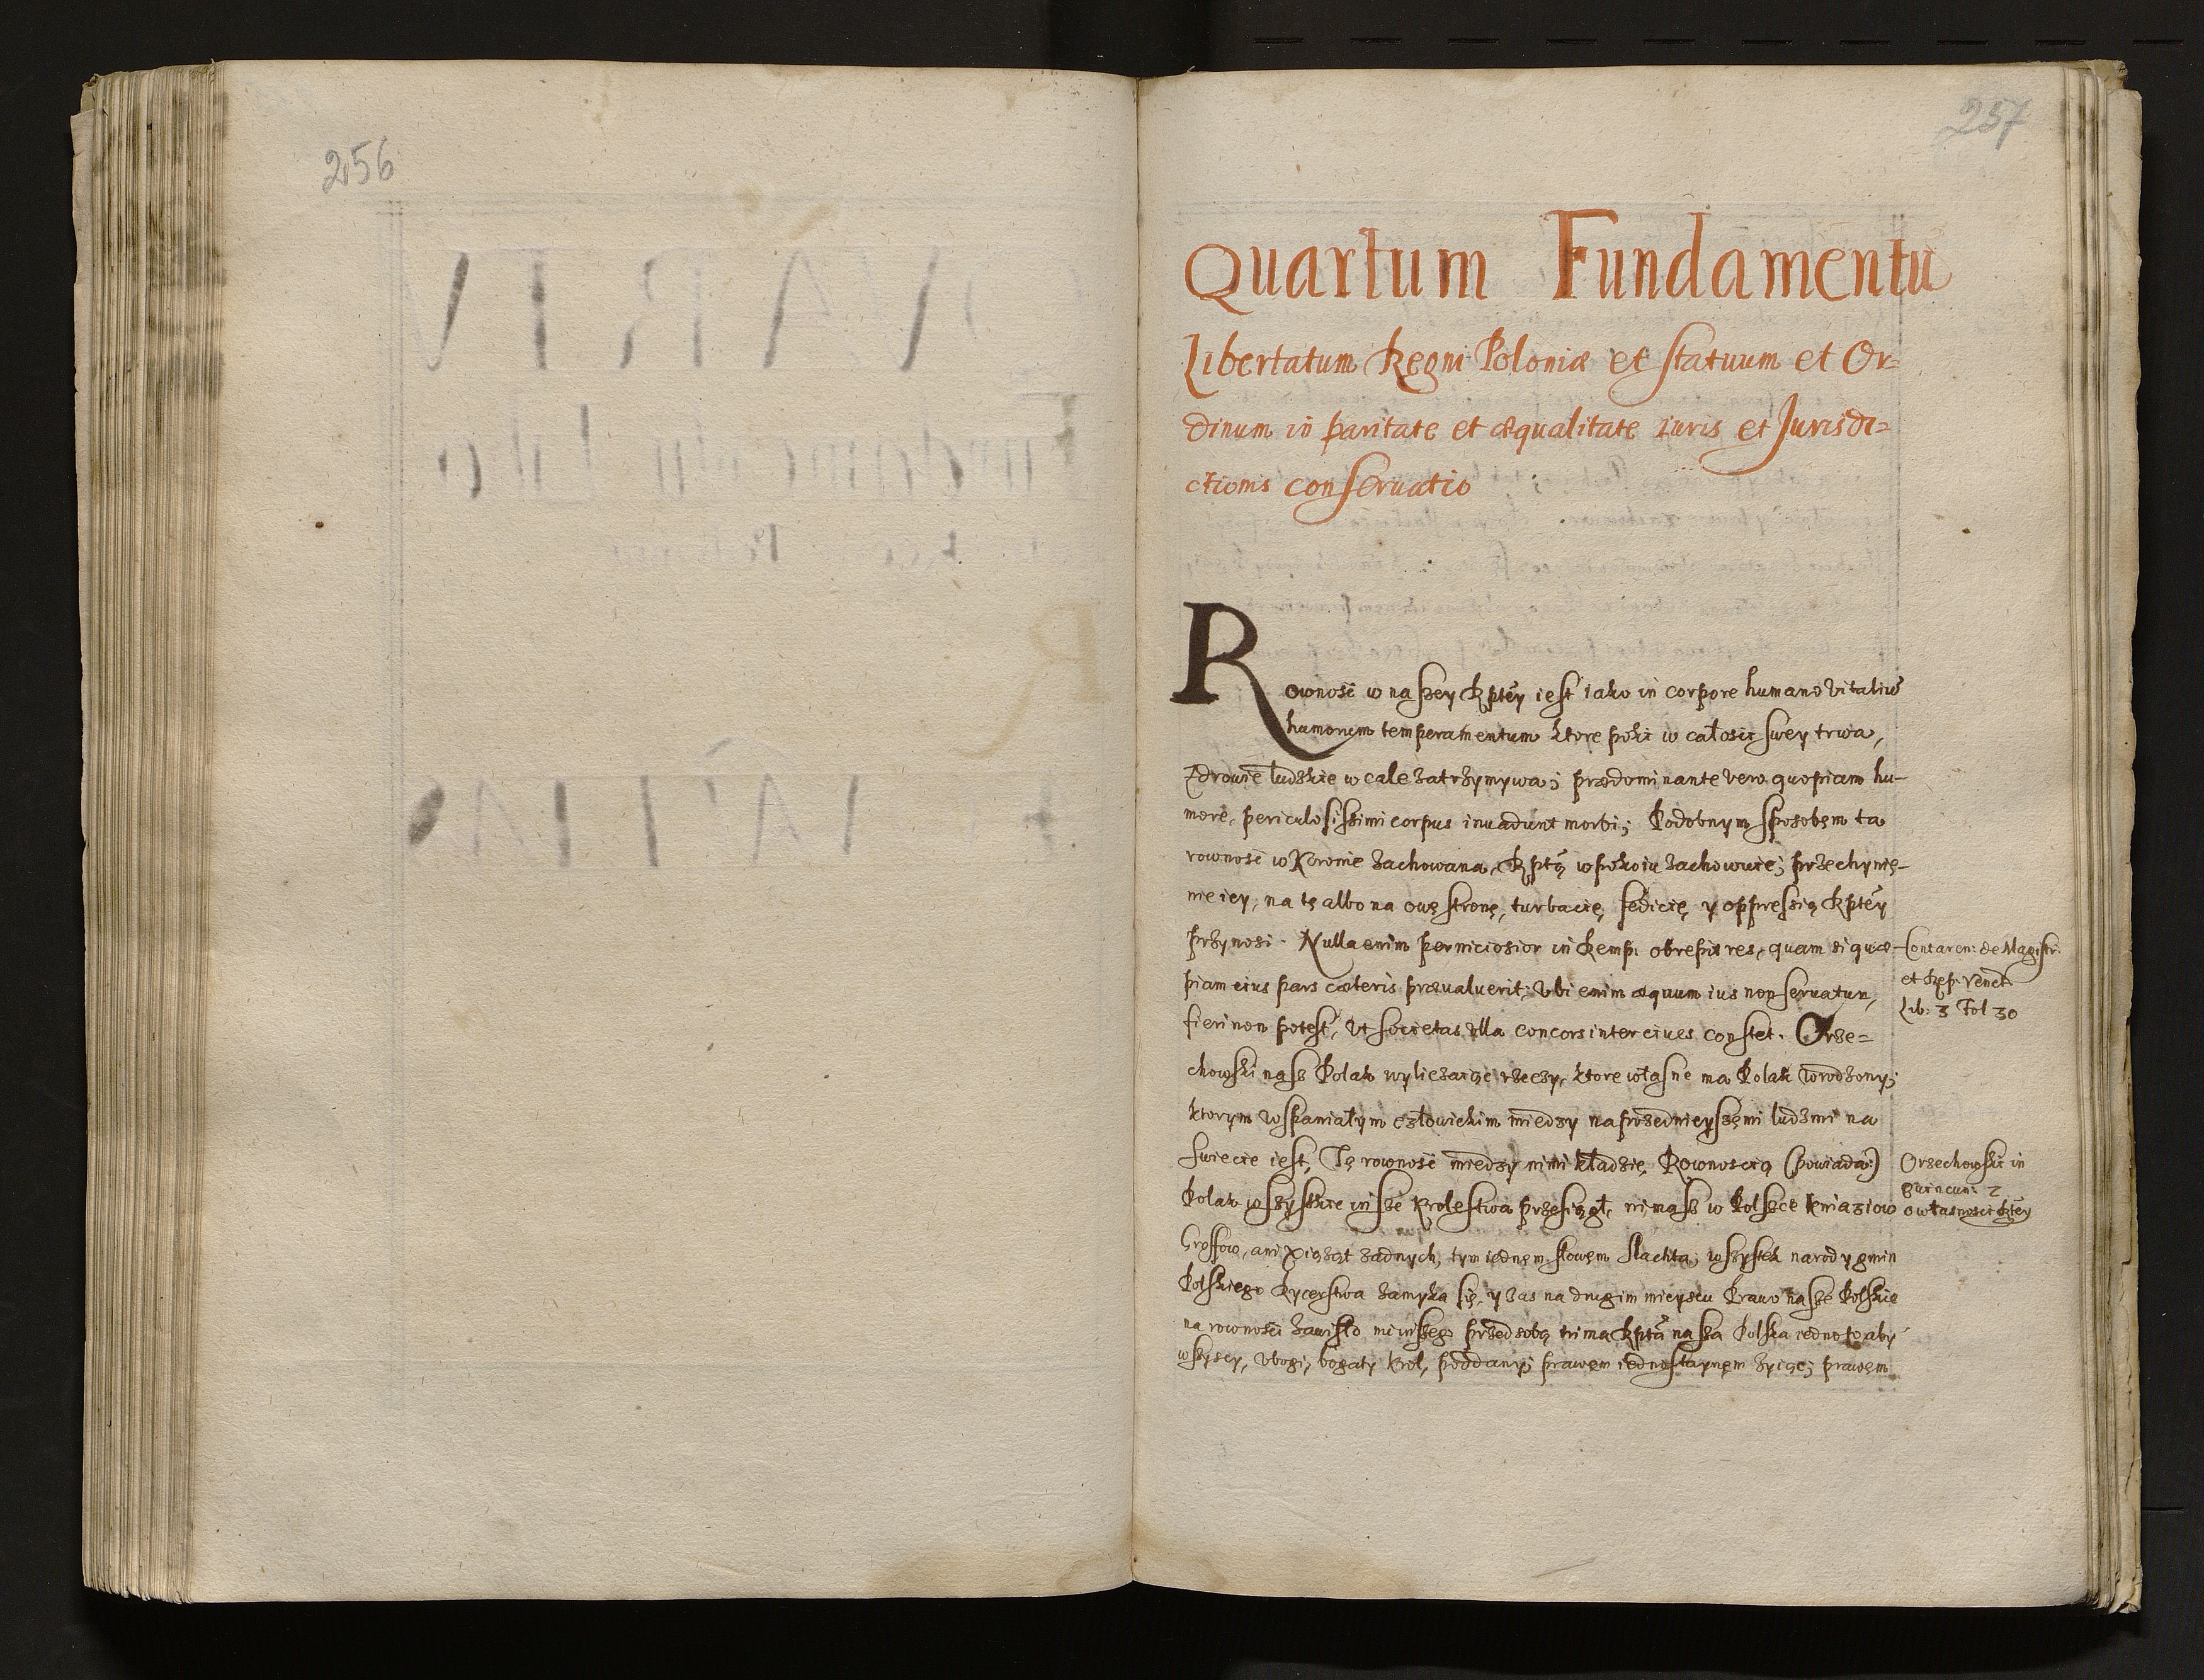 256
257
Quartum Fundamentũ
Libertatum Regni Poloniæ et statuum et Or=
dinum in paritate et æqualitate iuris et Jurisdi=
ctionis conseruatio
Rownosć w naszey Rptéy iest iako in corpore humano vitaliũ
humorum temperamentum ktore poki w całosci swey trwa,
Zdrowie ludzkie w cale zatrzymywa; prædominante vero quopiam hu-
more, periculosissimi corpus inuadunt morbi; Podobnym sposobem ta
rownosć w Koronie zachowana, Rptą w pokoiu zachowuie; przechynię-
nie iey, na tę albo na owę stronę, turbacię, sedicię y oppressią Rptéy
przynosi. Nulla enim perniciosior in Remp. obrepit res, quam si quæ-
piam eius pars cæteris præualuerit; Vbi enim æquum ius non seruatur,
fieri non potest, vt societas vlla concors inter ciues constet. Orze=
chowski nasz Polak wyliczaiąc rzeczy, ktore własne ma Polak vrodzony;
ktorym wspaniałym człowiekim miedzy naprzednieyszemi ludzmi na
swiecie iest, Tę rownosć miedzy nimi kładzie, Rownoscią (powiada)
Polak wszystkie insze Krolestwa przesiągł, nimasz w Polszce kniaziow
Groffow, ani Xiążąt żadnych, tym iednęm słowęm Slachta, wszystek narod y gmin
Polskiego Rycerstwa zamyka się, y zas na drugim mieyscu Prawo nasze Polskie
na rownosci zawisło nic inszego przed sobą nima Rptã nasza Polska iedno to aby
wszyscy, vbogi, bogaty Krol, poddany, prawem iednostaynęm żyiąc; prawęm
Contaren: de Magistr:
et Rep: Venet:
Lib: 3 Fol 30
Orzechowski in
quincun: 2
o własnosci Rtéy